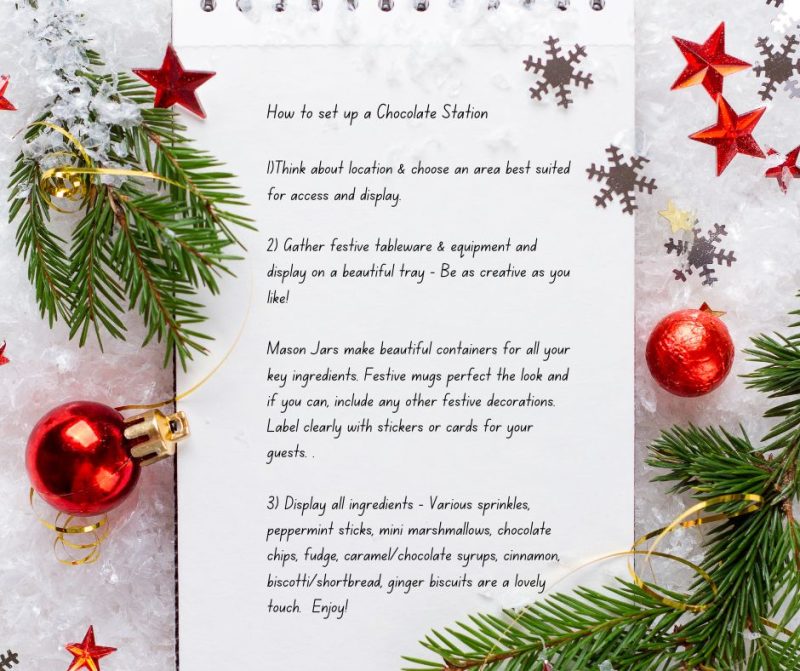 How to set up a Chocolate Station
1)Think about location & choose an area best suited
for access and display.
2) Gather festive tableware & equipment and
display on a beautiful tray - Be as creative as you
like!
Mason Jars make beautiful containers for all your
key ingredients. Festive mugs perfect the look and
if you can, include any other festive decorations.
Label clearly with stickers or cards for your
guests. .
3) Display all ingredients - Various sprinkles,
peppermint sticks, mini marshmallows, chocolate
chips, fudge, caramel/chocolate syrups, cinnamon,
biscotti/shortbread, ginger biscuits are a lovely
touch.  Enjoy!